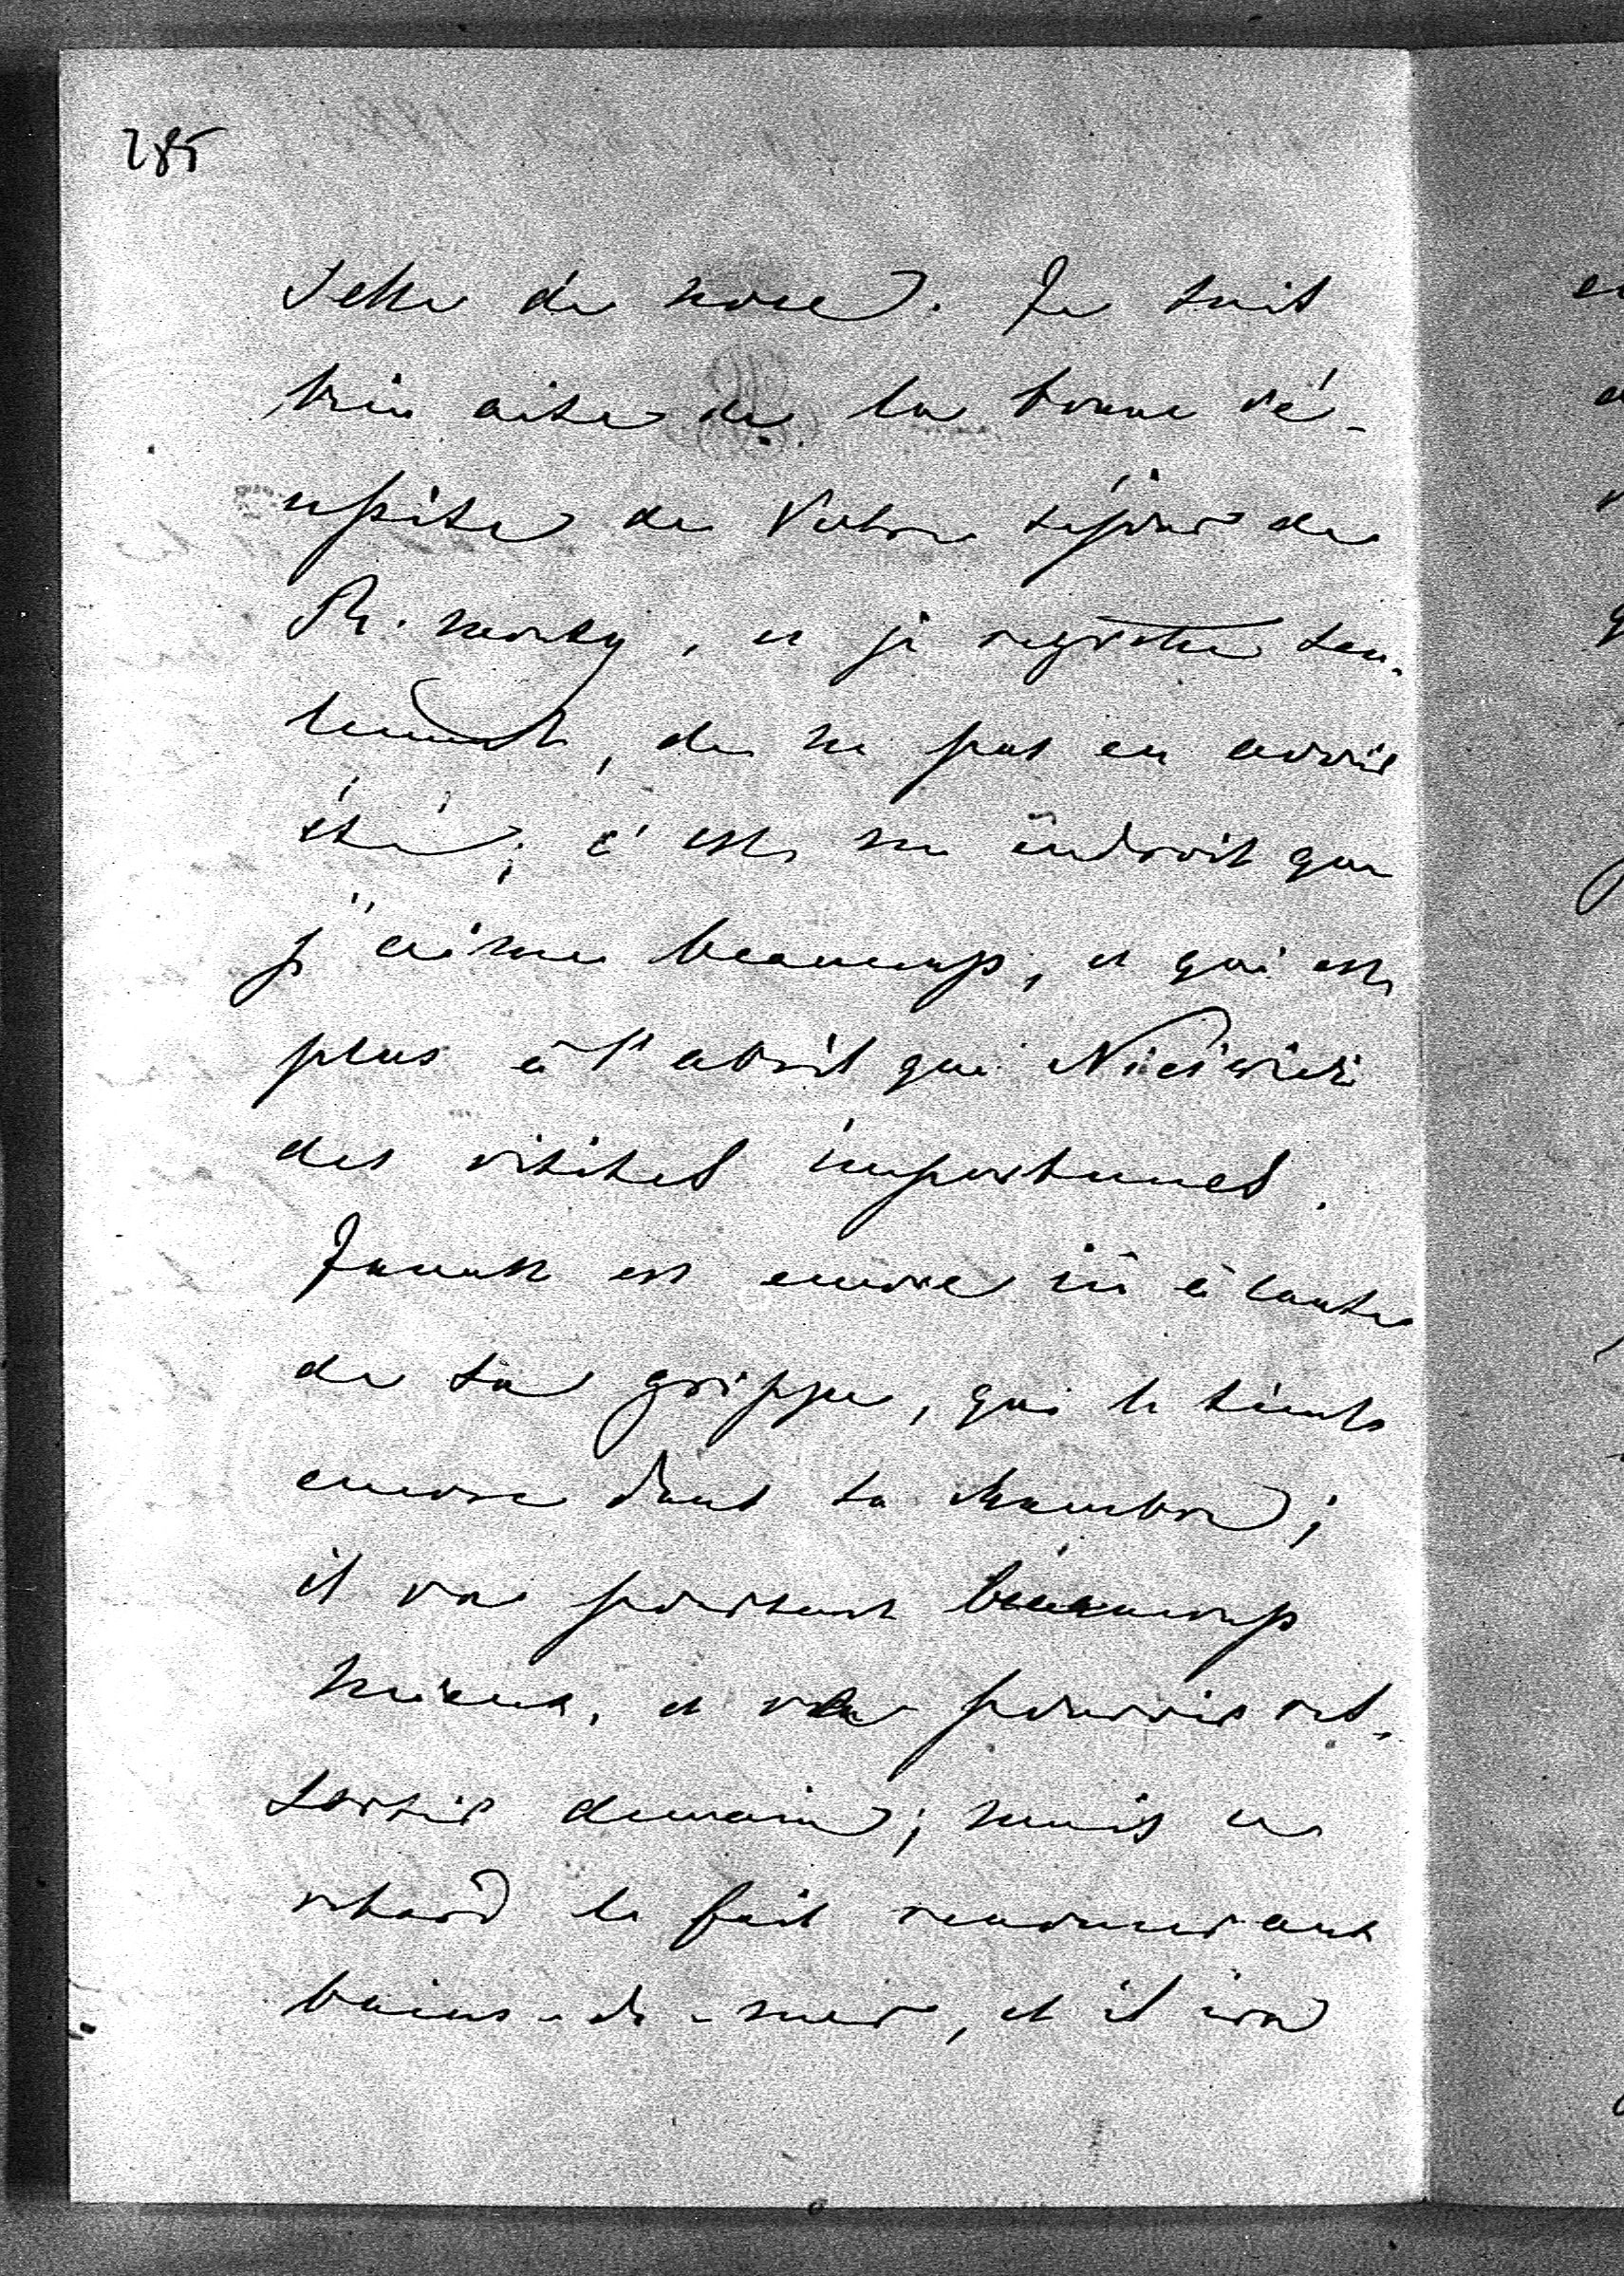 285
selle de noce. Je suis
bien aise de la bonne ré-
ussite de Votre séjour de
et je regrette seu-
lement, de ne pas en avoir
été; c'est un endroit que
j'aime beaucoup, et qui est
plus à l'abri que Nieśwież
des visites importunes.
est encore ici à cause
de sa grippe, qui le tient
encore dans sa chambre;
il va pourtant beaucoup
mieux, et va pouvoir res-
sortir demain; mais ce
retard le fait renoncer aux
bains-de-mer, et il ira